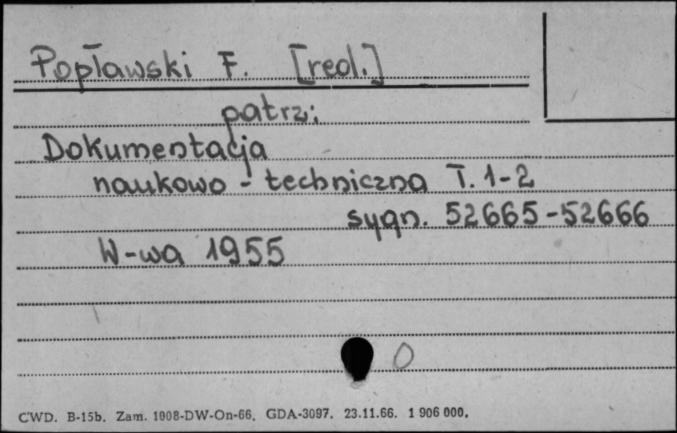 Popławski F. [red.]
patrz:
Dokumentacja
naukowo - techniczna T. 1-2
sygn. 52665-52666
W-wa 1955
O
CWD. B-15b. Zam. 1908-DW-On-66. GDA-3097. 23.11.66. 1 906 000.